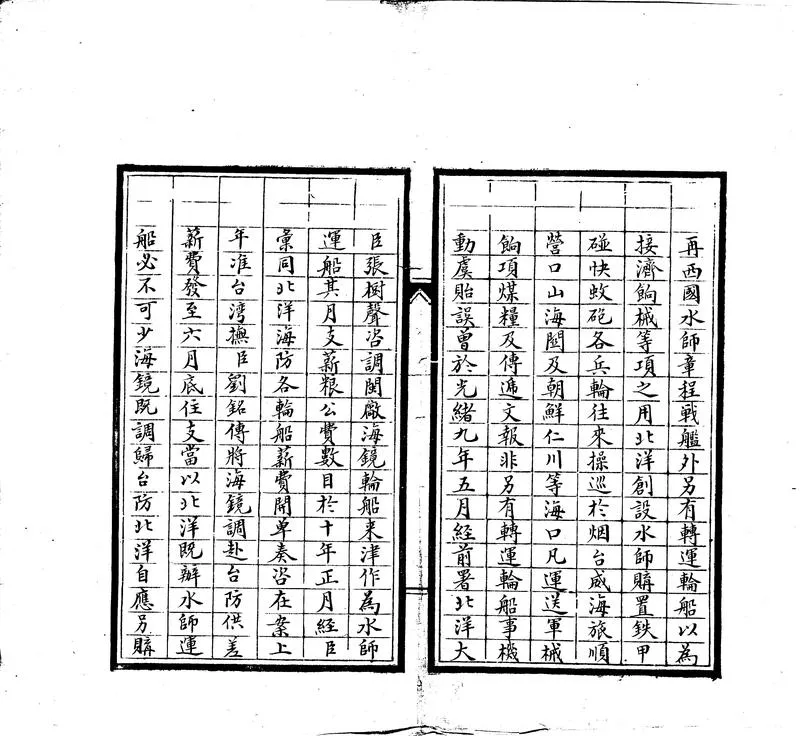 再西國水師章程戰艦外另有轉運輪船以為
接濟餉械等項之用北洋創設水師購置鉄甲
碰快蚊砲各兵輪往來操巡於烟台威海旅順
營口山海關及朝鮮仁川等海口凡運送軍械
餉項煤糧及傳遞文報非另有轉運輪船事機
動虞貽誤曾於光緒九年五月經前署北洋大
臣張樹聲咨調閩廠海鏡輪船来津作為水師
運船其月支薪粮公費數目於十年正月經臣
彙同北洋海防各輪船薪費開单奏咨在案上
年准台灣撫臣劉銘傳將海鏡調赴台防供差
薪費發至六月底住支當以北洋既辦水師運
船必不可少海鏡既調歸台防北洋自應另購